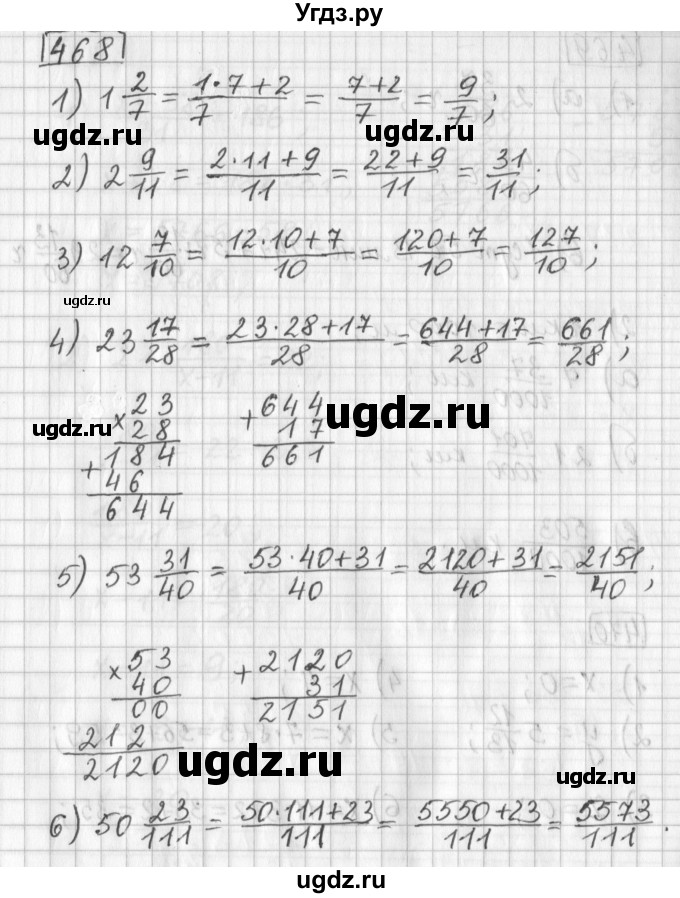 Угдз.ру
468
1) 1 2/7 = 1·7+2/7 = 7+2/7 = 9/7;
ugdz.ru ugdz.ru
2) 2 9/11 = 2·11+9/11 = 22+9/11 = 31/11;
3) 12 7/10 = 12·10+7/10 = 120+7/10 = 127/10;
ugdz.ru
4) 23 17/28 = 23·28+17/28 = 644+17/28 = 661/28;
×23 +644
28 17
184 661
+46
644
ugdz.ru ugdz.ru
5) 53 31/40 = 53·40+31/40 = 2120+31/40 = 2151/40;
×53 +2120
40 31
00 2151
212
2120
ugdz.ru ugdz.ru
6) 50 23/111 = 50·111+23/111 = 5550+23/111 = 5573/111.
ugdz.ru